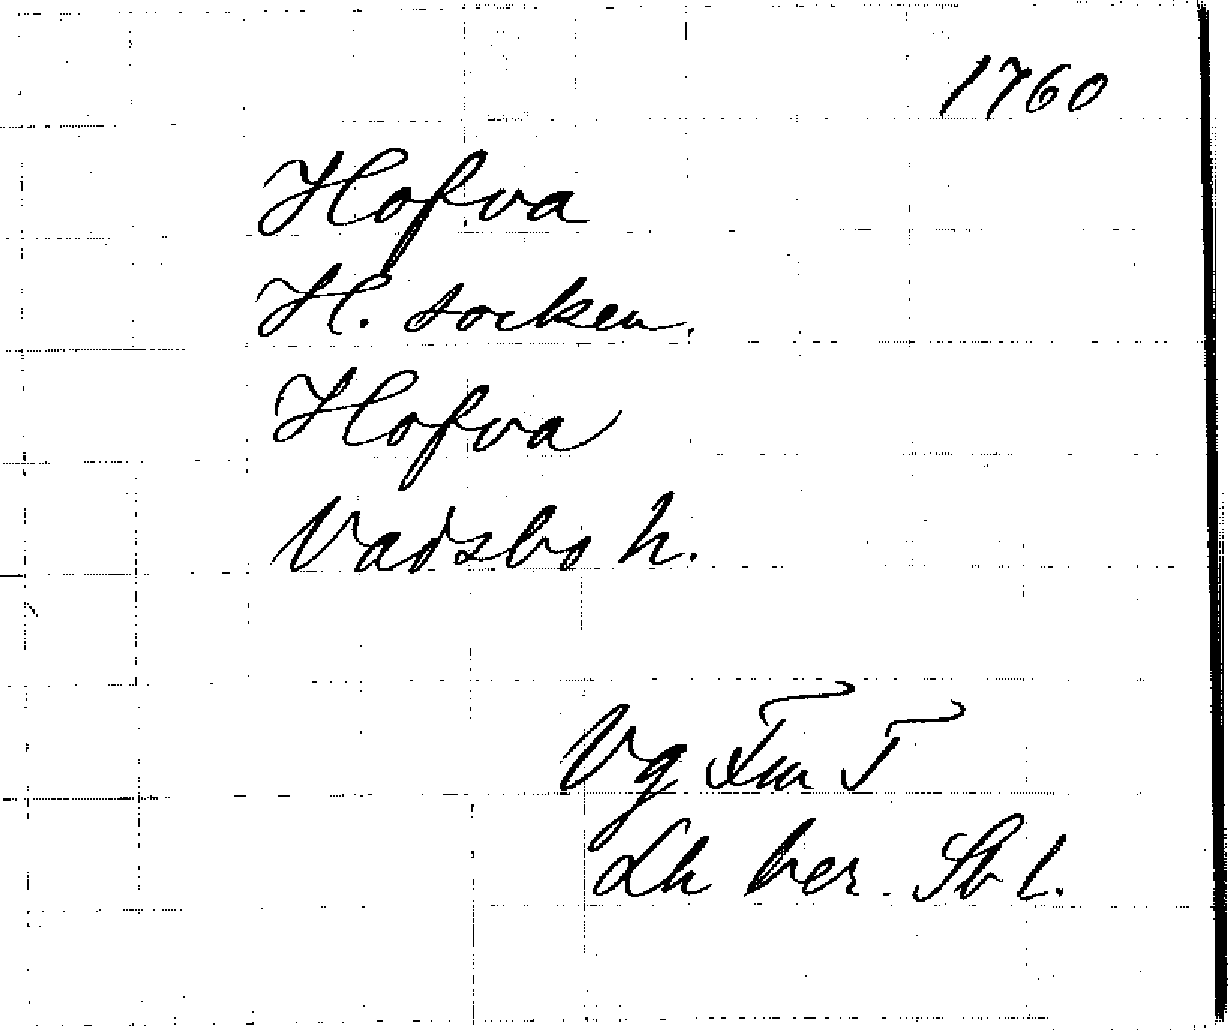 1760
Hofva
H. socken.
Hofva
Vadsbo h.
Vg Fm T
Lh ber. Sb l.